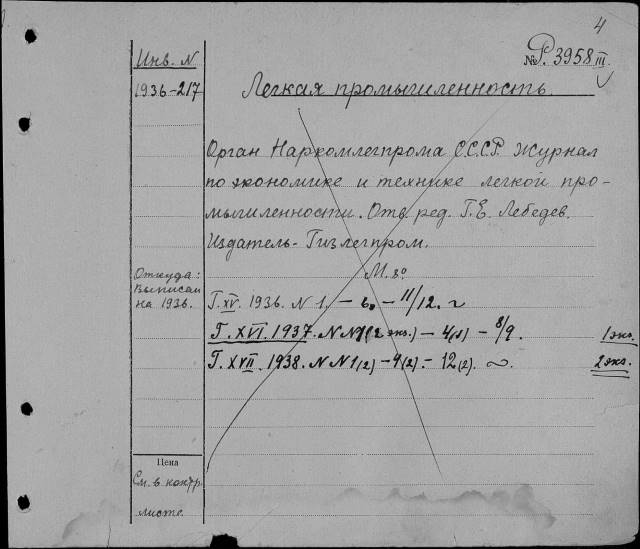 4
Инв. N
№ Р. 3958 III
1936-217
Легкая промышленность.
Орган Наркомлегпрома СССР. Журнал
по экономике и технике легкой про-
мышленности. Отв. ред. Г. Е. Лебедев.
Издатель - Гизлегпром.
М. 8°
Откуда:
Выписан
на 1936.
Г. XV. 1936. N 1. — 6. — 11/12.
Г. XVI. 1937. N N 1(2 экз.) — 4(3) — 8/9. 1 экз.
Г. XVII. 1938. N N 1(2) — 4(2) — 12(2). 2 экз.
Цена
См. в контр.
листе.